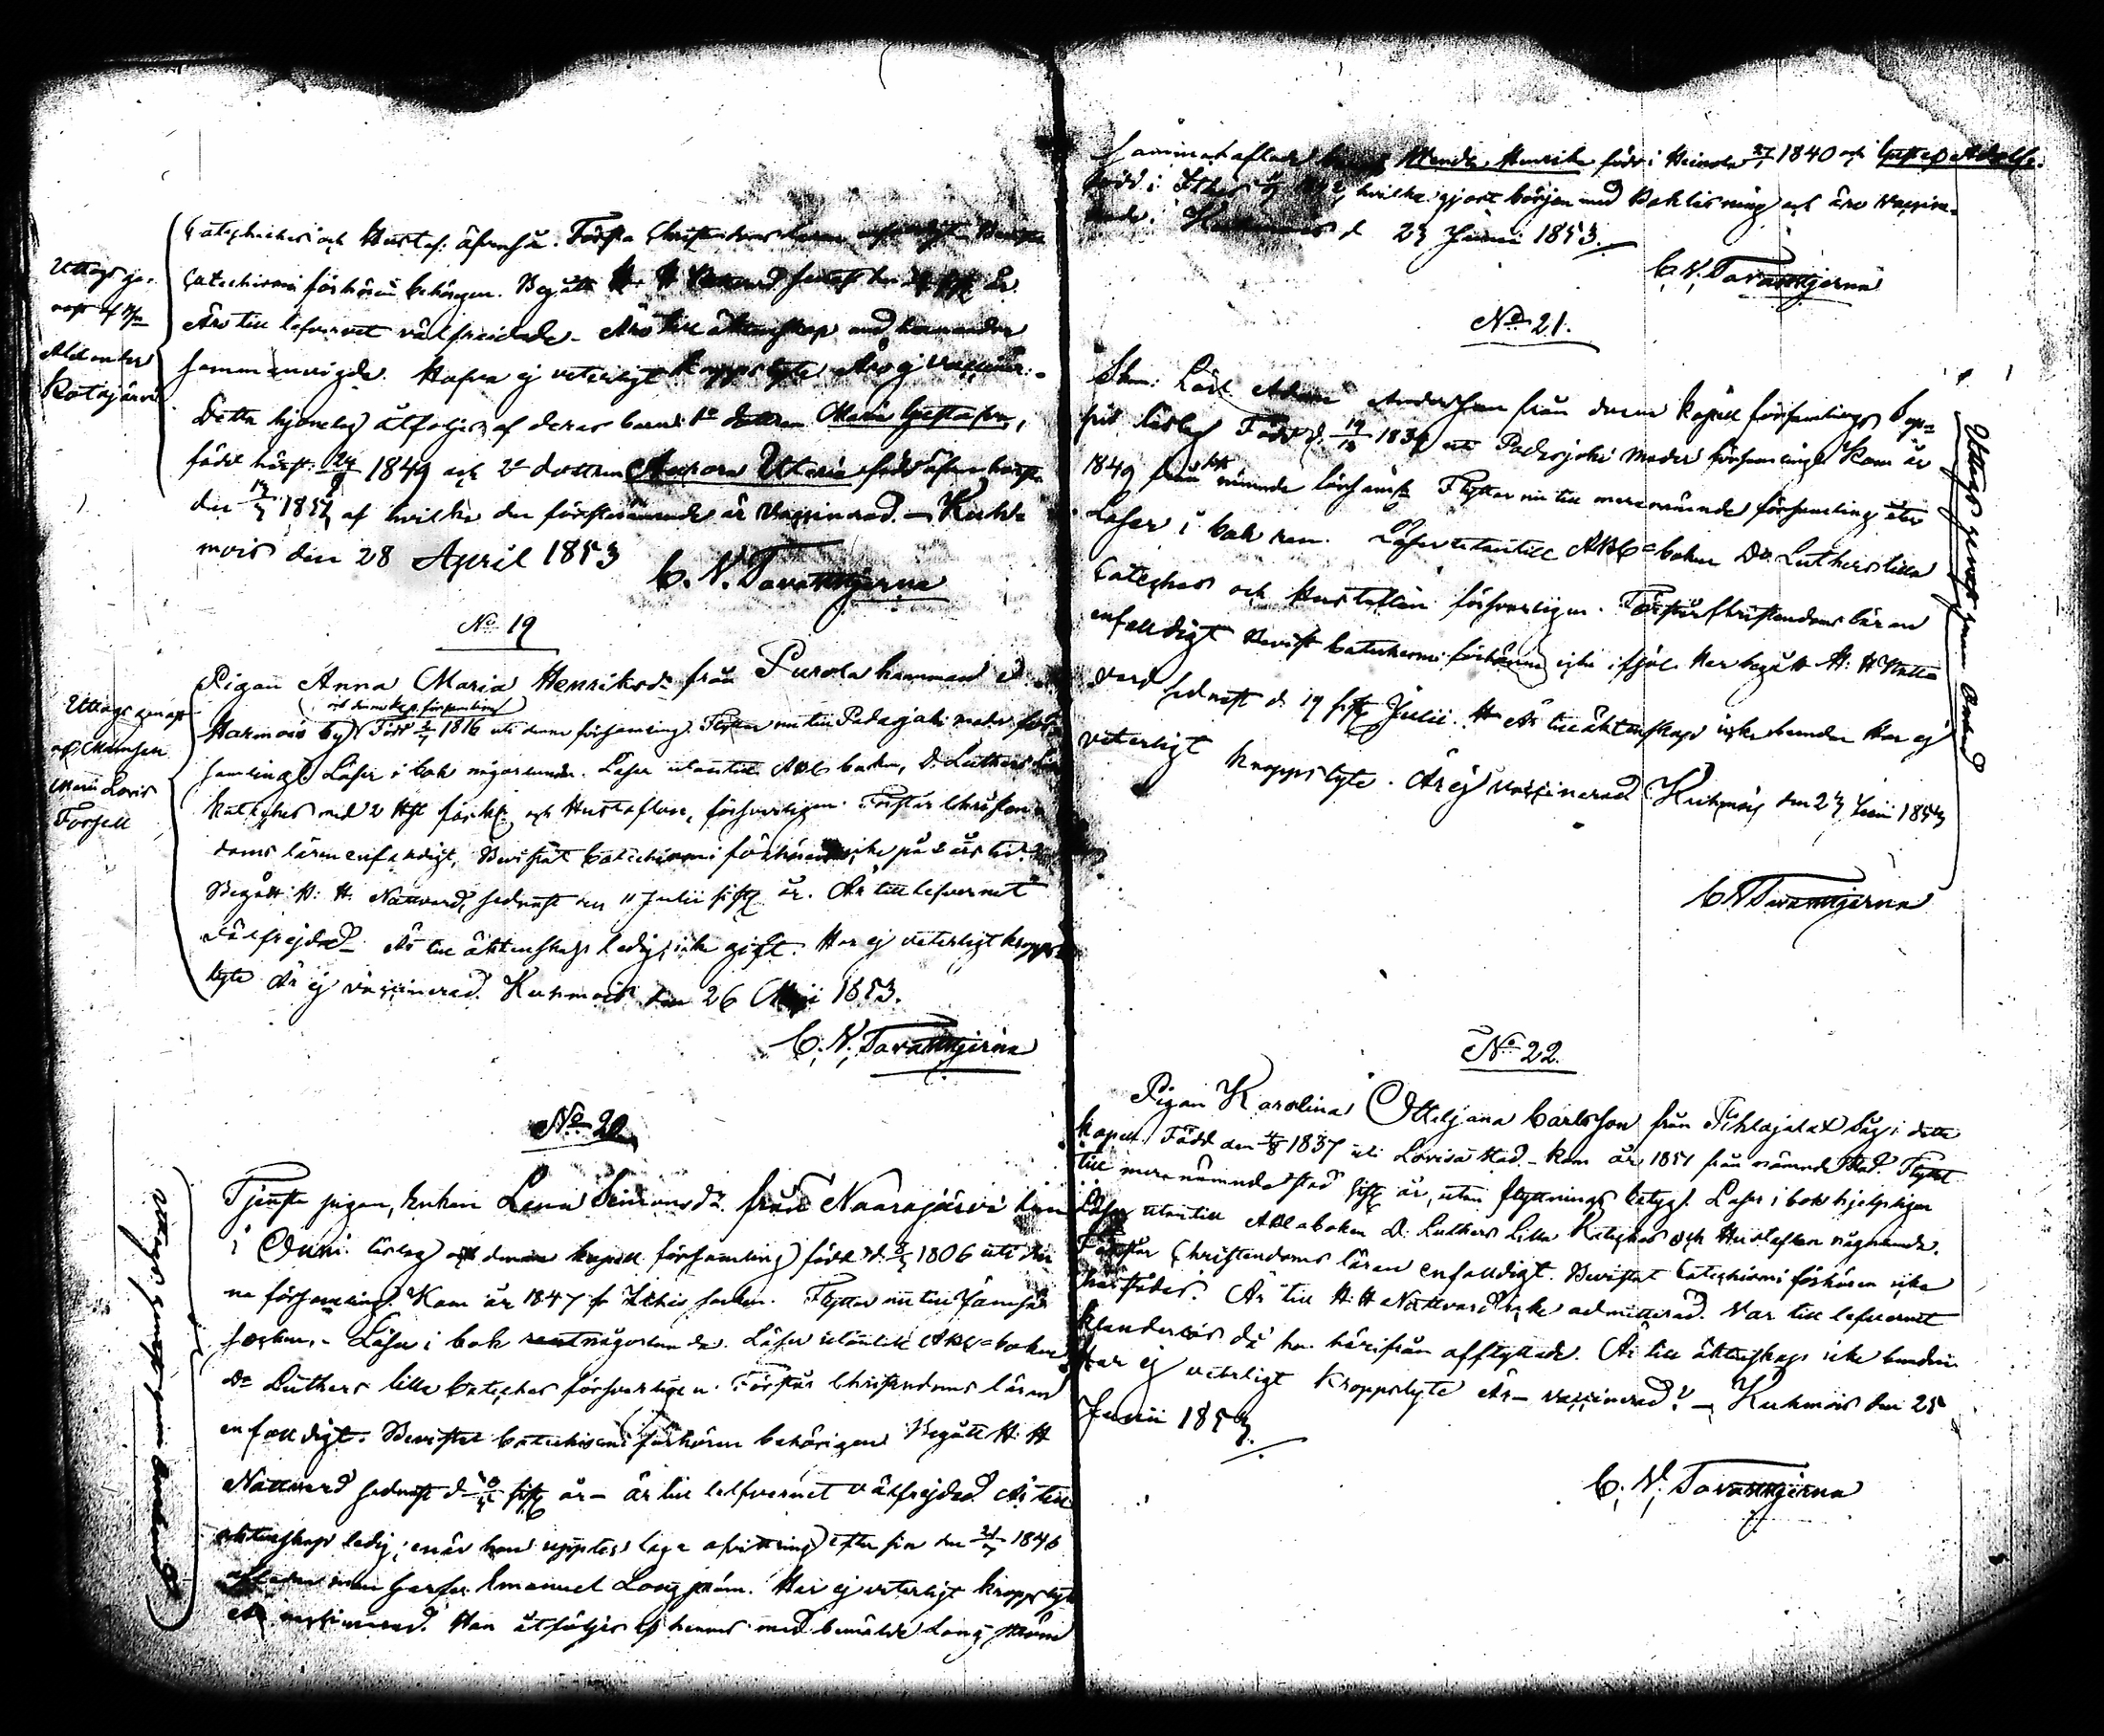 Cateches och Hustaf: äfvenså. Förstå Christendoms läran
Catechismi förhören behörigen. Begått H. H. Nattvard senast den år.
Äro till lefvernet välfrejdade. Äro till äktenskap med hvarandra
sammanvigde. Hafva ej veterligt kroppslyte. Äro ej vacciner:
Detta hjonelag åtföljes af deras barn: 1o dottren Maria Gustafva,
född härst: 24/9 1849 och 2o dottren Aurora Ulrica född äfven härst:
den 1852 af hvilka den förstnämnda är vaccinerad. — Kuhmois
mois den 28 April 1853
C. N. Tavaststjerna
Uttagit ge-
nast af
Alexander
Kotajärvi
No 19
Pigan Anna Maria Henriksdr från Purola hemman i
Harmois by uti denna kap. församling Född 2/7 1816 uti denna församling. Flyttar nu till Padasjoki moder för-
samling. Läser i bok någorlunda. Läser utantill ABC boken, D. Luthers lilla
Kateches med 2 Hfl förkl: och Hustaflan, försvarligen. Förstår Christen-
doms läran enfaldigt, Bevistat Catechismi förhören icke på 2 års tid.
Begått H. H. Nattvard, sednast den 11 Julii sistl. år. Är till lefvernet
välfrejdad. Är till äktenskap ledig, icke gift. Har ej veterligt kropps
lyte Är ej vaccinerad. Kuhmois den 26 Maji 1853.
C. N. Tavaststjerna
Uttagit genast
af Månsson
Lovis
Forsell
No 20
Tjenste pigan, Enkan Lena Simonsdr från Naarajärvi hem
i Ouni lislag och denna kapell församling född d. 1806 uti den
na församling. Kom år 1847 fr Ithis socken. Flyttar nu till Jämsä
socken. - Läser i bok någorlunda. Läser utantill ABC=boken
Dr Luthers lilla Cateches försvarligen. Förstår Christendoms läran
enfalldigt. Bevistat Catechismi förhören behörigen Begått H. H.
Nattvard sednast d. sistl år — är till lefvernet välfrejdad. Är till
äktenskap ledig, enär hon upptes laga afvittring efter sin den 21/7 1846
aflidne man Emanuel Longström. Har ej veterligt kroppslyte
Är vaccinerad. Hon åtföljes af hennes med bemälde Longström
Uttagit genast genom
sammanaflade barn, Wendla Henrika född i Heinola 27/ 1840 och Gustaf Adolf.
född i Ithis hvilka gjort början med Boklesning och äro vaccine-
rade. Kuhmois d 23 Junii 1853.
C. N. Tavaststjerna
No 21.
Skom: Lärl. Adam Andersson från denna Kapell församlings
Född d. 19/12 1834 uti Padasjoki moder församling. Kom år
1849 från nämnde församl. Flyttar nu till merenämnde församling åter
Läser i bok ren. Läser utantill ABC=boken Dr Luthers lilla
Cateches och Hustaflan försvarligen. Förstår Christendoms läran
enfalldigt Bevist Catechismi förhören icke i fjol. Har begått H. H. Natt
vard sednast d. 19 sistl Julii. Är till äktenskap icke bunden Har ej
veterligt kroppslyte. Är ej vaccinerad. Kuhmois den 23 Junii 1853
C N Tavaststjerna
Uttagit genast genom
No 22.
Pigan Karolina Ottiljana Carlsson från Tihlajalax Såg i detta
kapell. Född den 4/8 1837 uti Lovisa stad. - Kom år 1851 från nämnde stad. Flyttat
till merenämnda stad sistl år, utan flyttnings betyg. Läser i bok hjelpligen
Läser utantill ABC boken D. Luthers Lilla Kateches och Hustaflan någorlunda.
Förstår Christendoms läran enfalldigt. Bevistat Catechismi förhören icke
härstädes. Är till H. H. Nattvard icke admitterad. Var till lefvernet
klanderlös då hon härifrån afflyttade. Är till äktenskap icke bunden
Har ej veterligt kroppslyte Är — vaccinerad? — Kuhmois den 25
Junii 1853.
C. N. Tavaststjerna